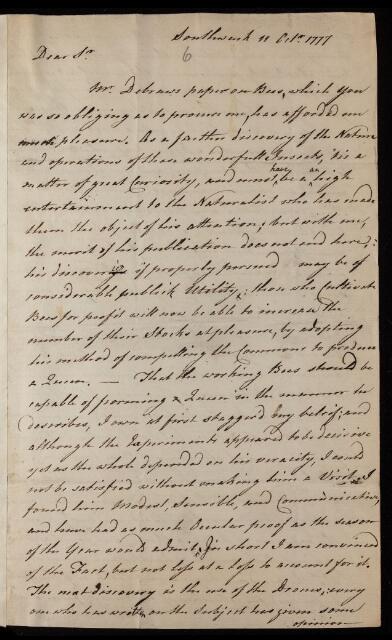 Southwark 11 Octr. 1777
6
Dear Sr.
Mr. Debraws paper on Bees, which you
was so obliging as to procure me, has afforded me
much pleasure. As a farther discovery of the Nature
and operations of these wonderfull Insects, 'tis a
matter of great Curiosity, and must have been an high
entertainment to the Naturalist who has made
them the object of his attention; but with me,
the merit of his publication does not end here;
his discoveries if properly pursued may be of
considerable publick Utility; those who Cultivate
Bees for profit will now be able to increase the
number of their Stocks at pleasure, by adopting
his method of compelling the Commons to produce
a Queen. — That the working Bees should be
capable of forming a Queen in the manner he
describes, I own at first stagger'd my belief; and
although the Experiments appeared to be decisive
yet as the whole depended on his veracity, I could
not be satisfied without making him a Visit. I
found him Modest, Sensible, and Communicative,
and have had as much Ocular proof as the season
of the Year would admit; In short I am convinced
of the Fact, but not less at a loss to account for it.
The next discovery is the use of the Drones; every
one who has wrote on the Subject has given some
opinion